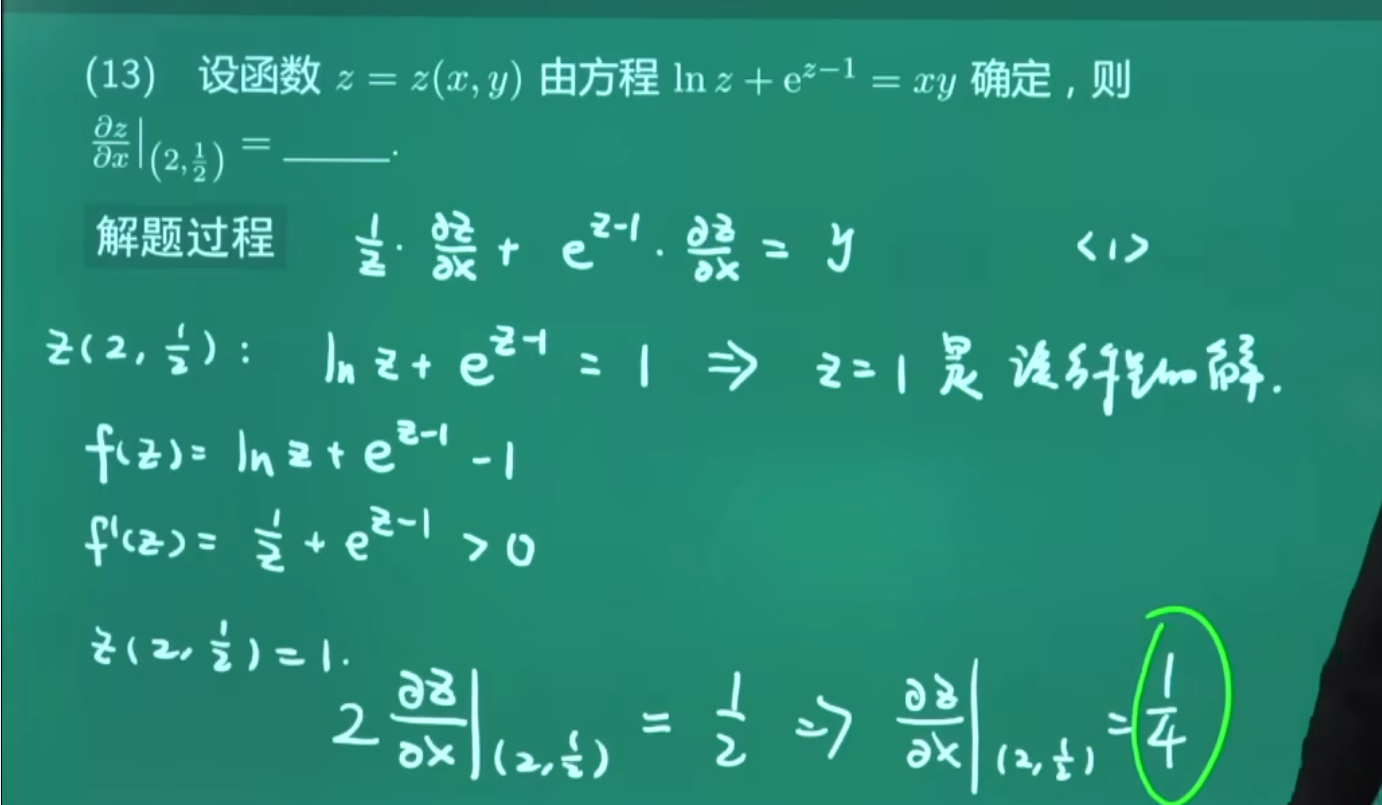 (13) 设函数 z = z(x, y) 由方程 ln z + e^{z−1} = xy 确定，则
∂z/∂x|_{(2, 1/2)} = ____.
解题过程 1/z · ∂z/∂x + e^{z-1} · ∂z/∂x = y <1>
z(2, 1/2): ln z + e^{z-1} = 1 ⇒ z=1 是 该方程的解.
f(z) = ln z + e^{z-1} - 1
f'(z) = 1/z + e^{z-1} > 0
z(2, 1/2) = 1.
2 ∂z/∂x|_{(2, 1/2)} = 1/2 ⇒ ∂z/∂x|_{(2, 1/2)} = 1/4